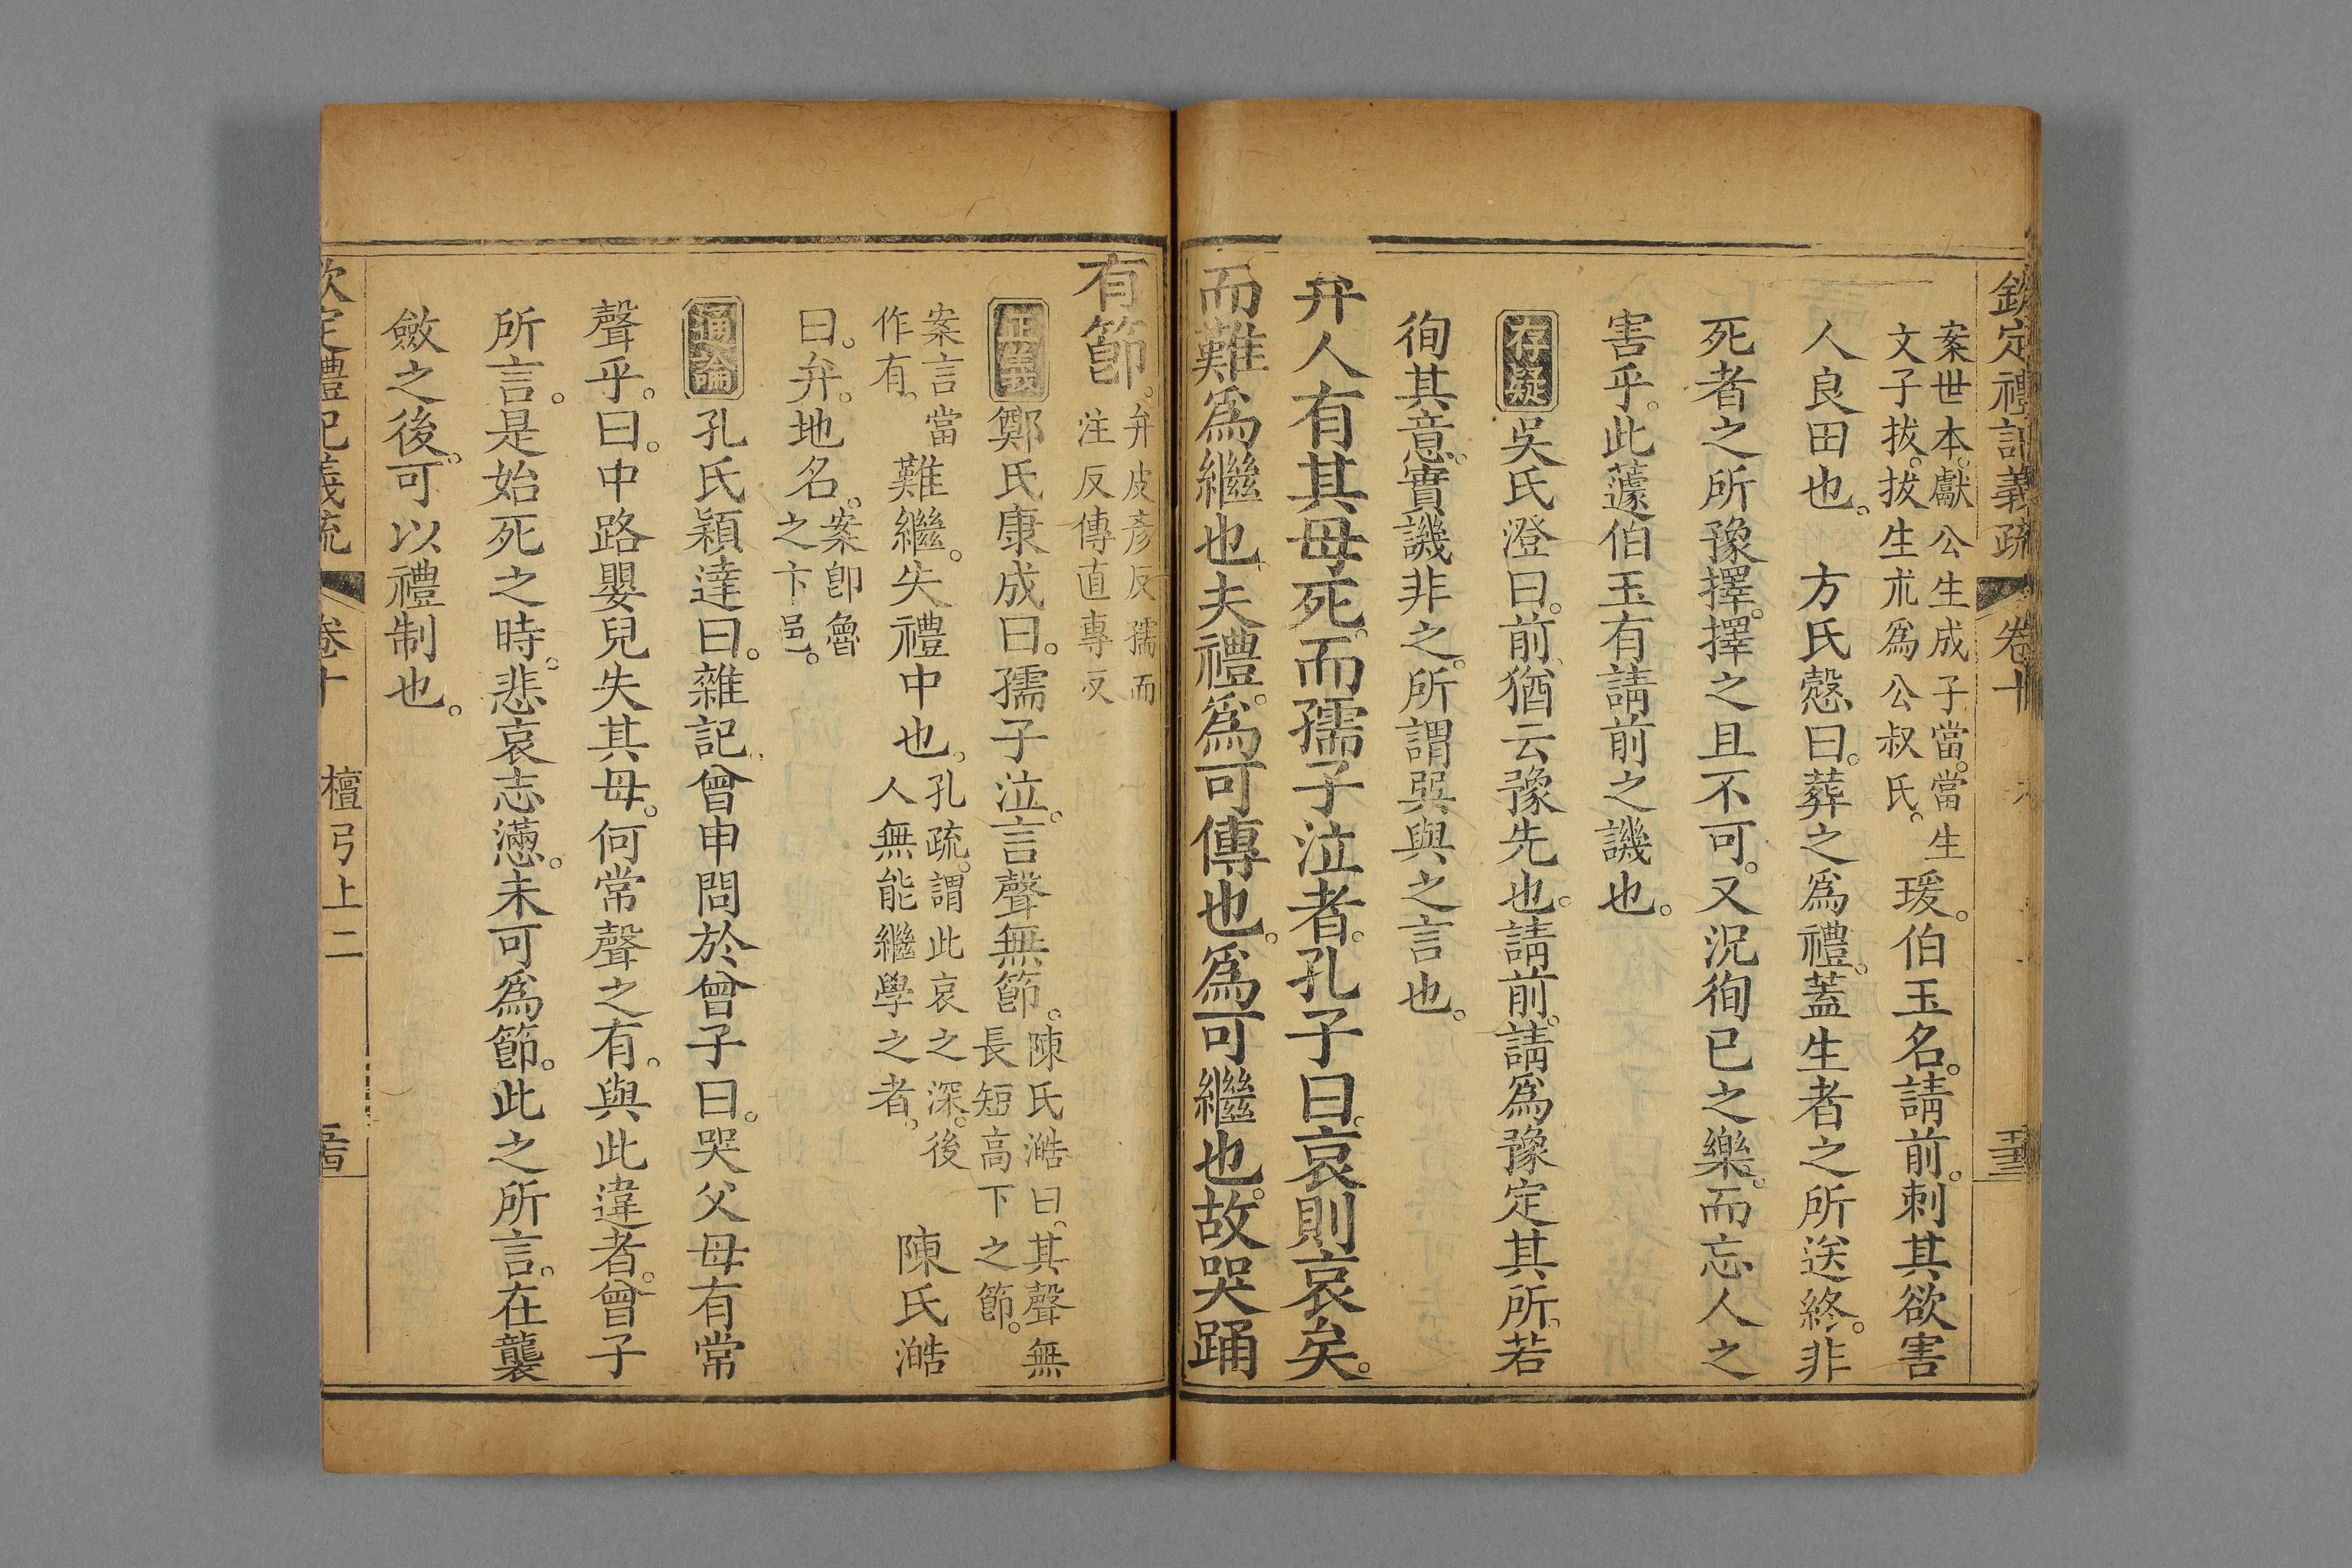 欽定禮記義疏 卷十
案世本。獻公生成子當。當生
文子拔。拔生朮爲公叔氏。
瑗。伯玉名。請前。刺其欲害
人良田也。 方氏慤曰。葬之爲禮。蓋生者之所送終。非
死者之所豫擇。擇之且不可。又況徇已之樂。而忘人之
害乎。此蘧伯玉有請前之譏也。
存疑 吳氏澄曰。前猶云豫先也。請前。請爲豫定其所。若
徇其意。實譏非之。所謂巽與之言也。
弁人有其母死。而孺子泣者。孔子曰。哀則哀矣。
而難爲繼也。夫禮。爲可傳也。爲可繼也。故哭踊
有節。
弁皮彥反孺而
注反傳直專反
正義 鄭氏康成曰。孺子泣。言聲無節。
陳氏澔曰。其聲無
長短高下之節。
案言當
作有。
難繼。失禮中也。
孔疏。謂此哀之深。後
人無能繼學之者。
陳氏澔
曰。弁。地名。
案卽魯
之卞邑。
通論 孔氏穎達曰。雜記曾申問於曾子曰。哭父母有常
聲乎。曰。中路嬰兒失其母。何常聲之有。與此違者。曾子
所言。是始死之時。悲哀志懣。未可爲節。此之所言。在襲
斂之後。可以禮制也。
欽定禮記義疏 卷十 檀弓上二